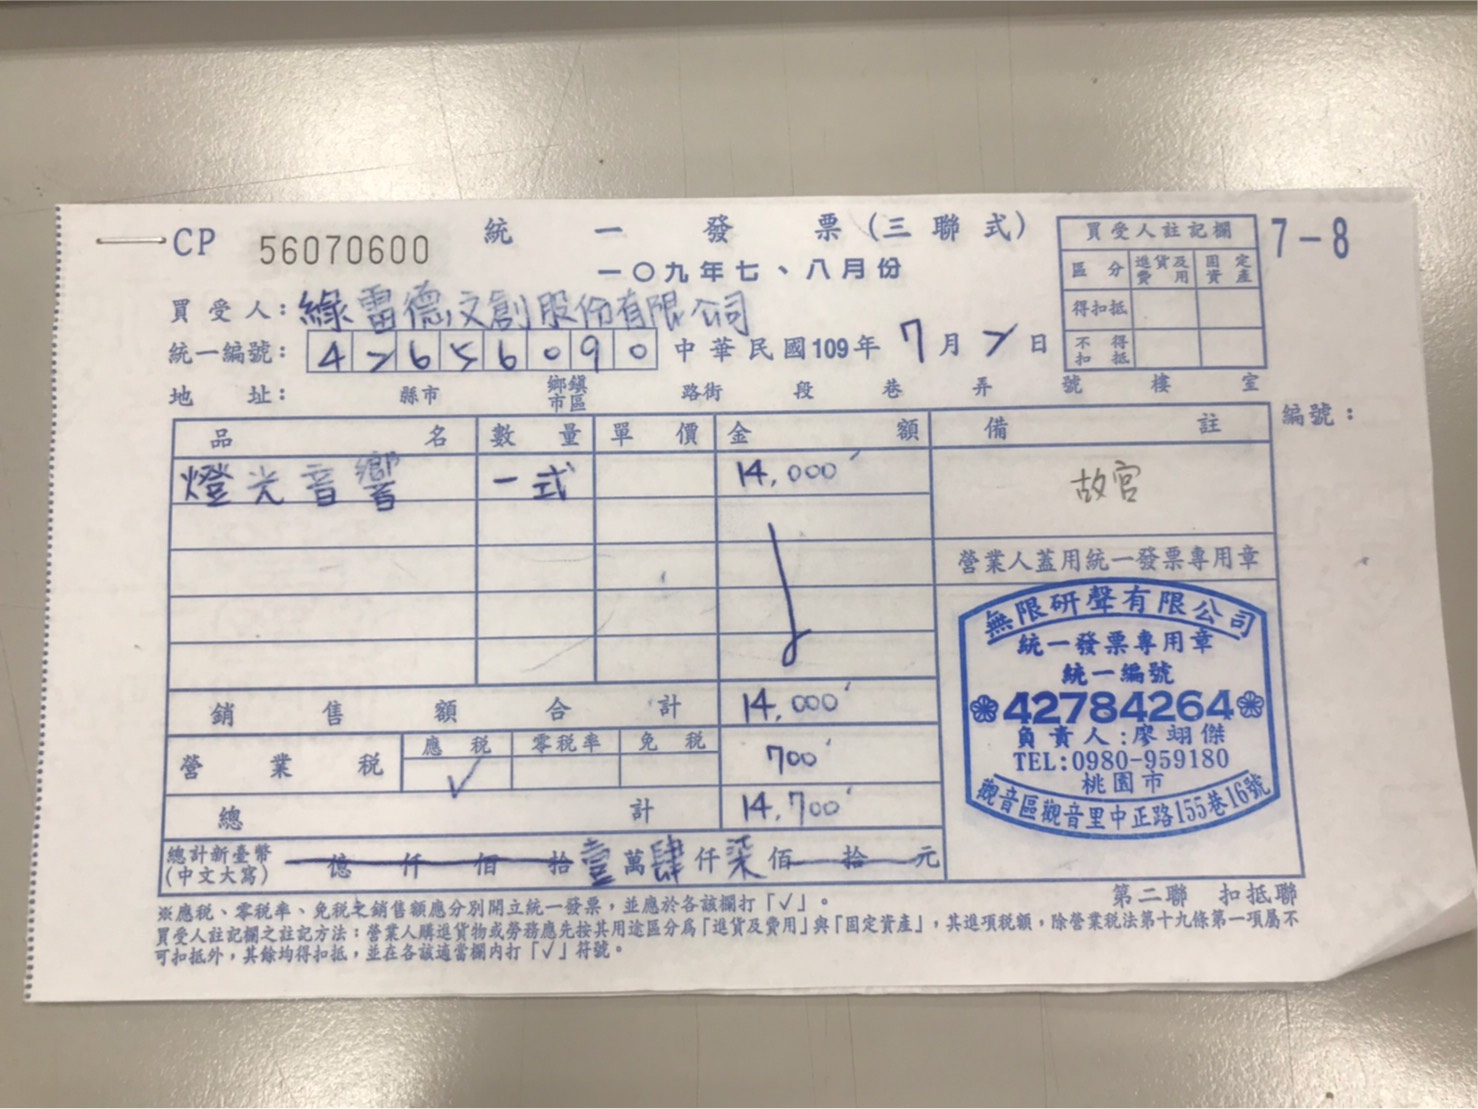 CP 56070600 統一發票(三聯式) 7-8
一〇九年七、八月份
買受人註記欄
區分 進貨及費用 固定資產
得扣抵
不得扣抵
買受人:綠雷德文創股份有限公司
統一編號: 42656090 中華民國109年7月7日
地址: 縣市 鄉鎮市區 路街 段 巷 弄 號 樓 室
編號:
品名 數量 單價 金額 備註
燈光音響 一式 14,000 故宮
營業人蓋用統一發票專用章
無限研聲有限公司
統一發票專用章
統一編號
42784264
負責人:廖翊傑
TEL:0980-959180
桃園市
觀音區觀音里中正路155巷16號
銷售額合計 14,000
營業稅 應稅 ✓ 零稅率 免稅 700
總計 14,700
總計新臺幣(中文大寫) 億 仟 佰 拾 壹萬肆仟柒佰 拾 元
第二聯 扣抵聯
※應稅、零稅率、免稅之銷售額應分別開立統一發票,並應於各該欄打「✓」。
買受人註記欄之註記方法:營業人購進貨物或勞務應先按其用途區分為「進貨及費用」與「固定資產」,其進項稅額,除營業稅法第十九條第一項屬不
可扣抵外,其餘均得扣抵,並在各該適當欄內打「✓」符號。